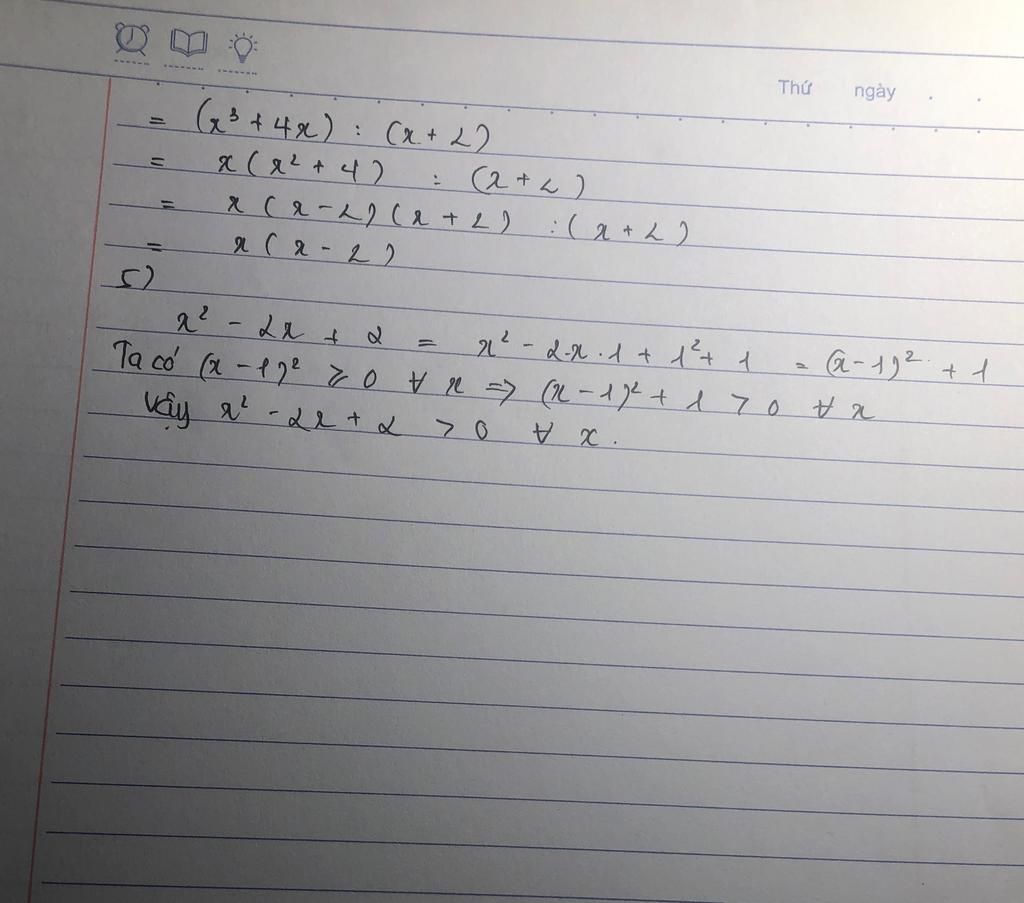 Thứ ngày . .
= (x³ + 4x) : (x + 2)
= x(x² + 4) : (x + 2)
= x(x - 2)(x + 2) : (x + 2)
= x(x - 2)
5)
x² - 2x + 2 = x² - 2.x.1 + 1² + 1 = (x - 1)² + 1
Ta có (x - 1)² ⩾ 0 ∀ x => (x - 1)² + 1 > 0 ∀ x
Vậy x² - 2x + 2 > 0 ∀ x.